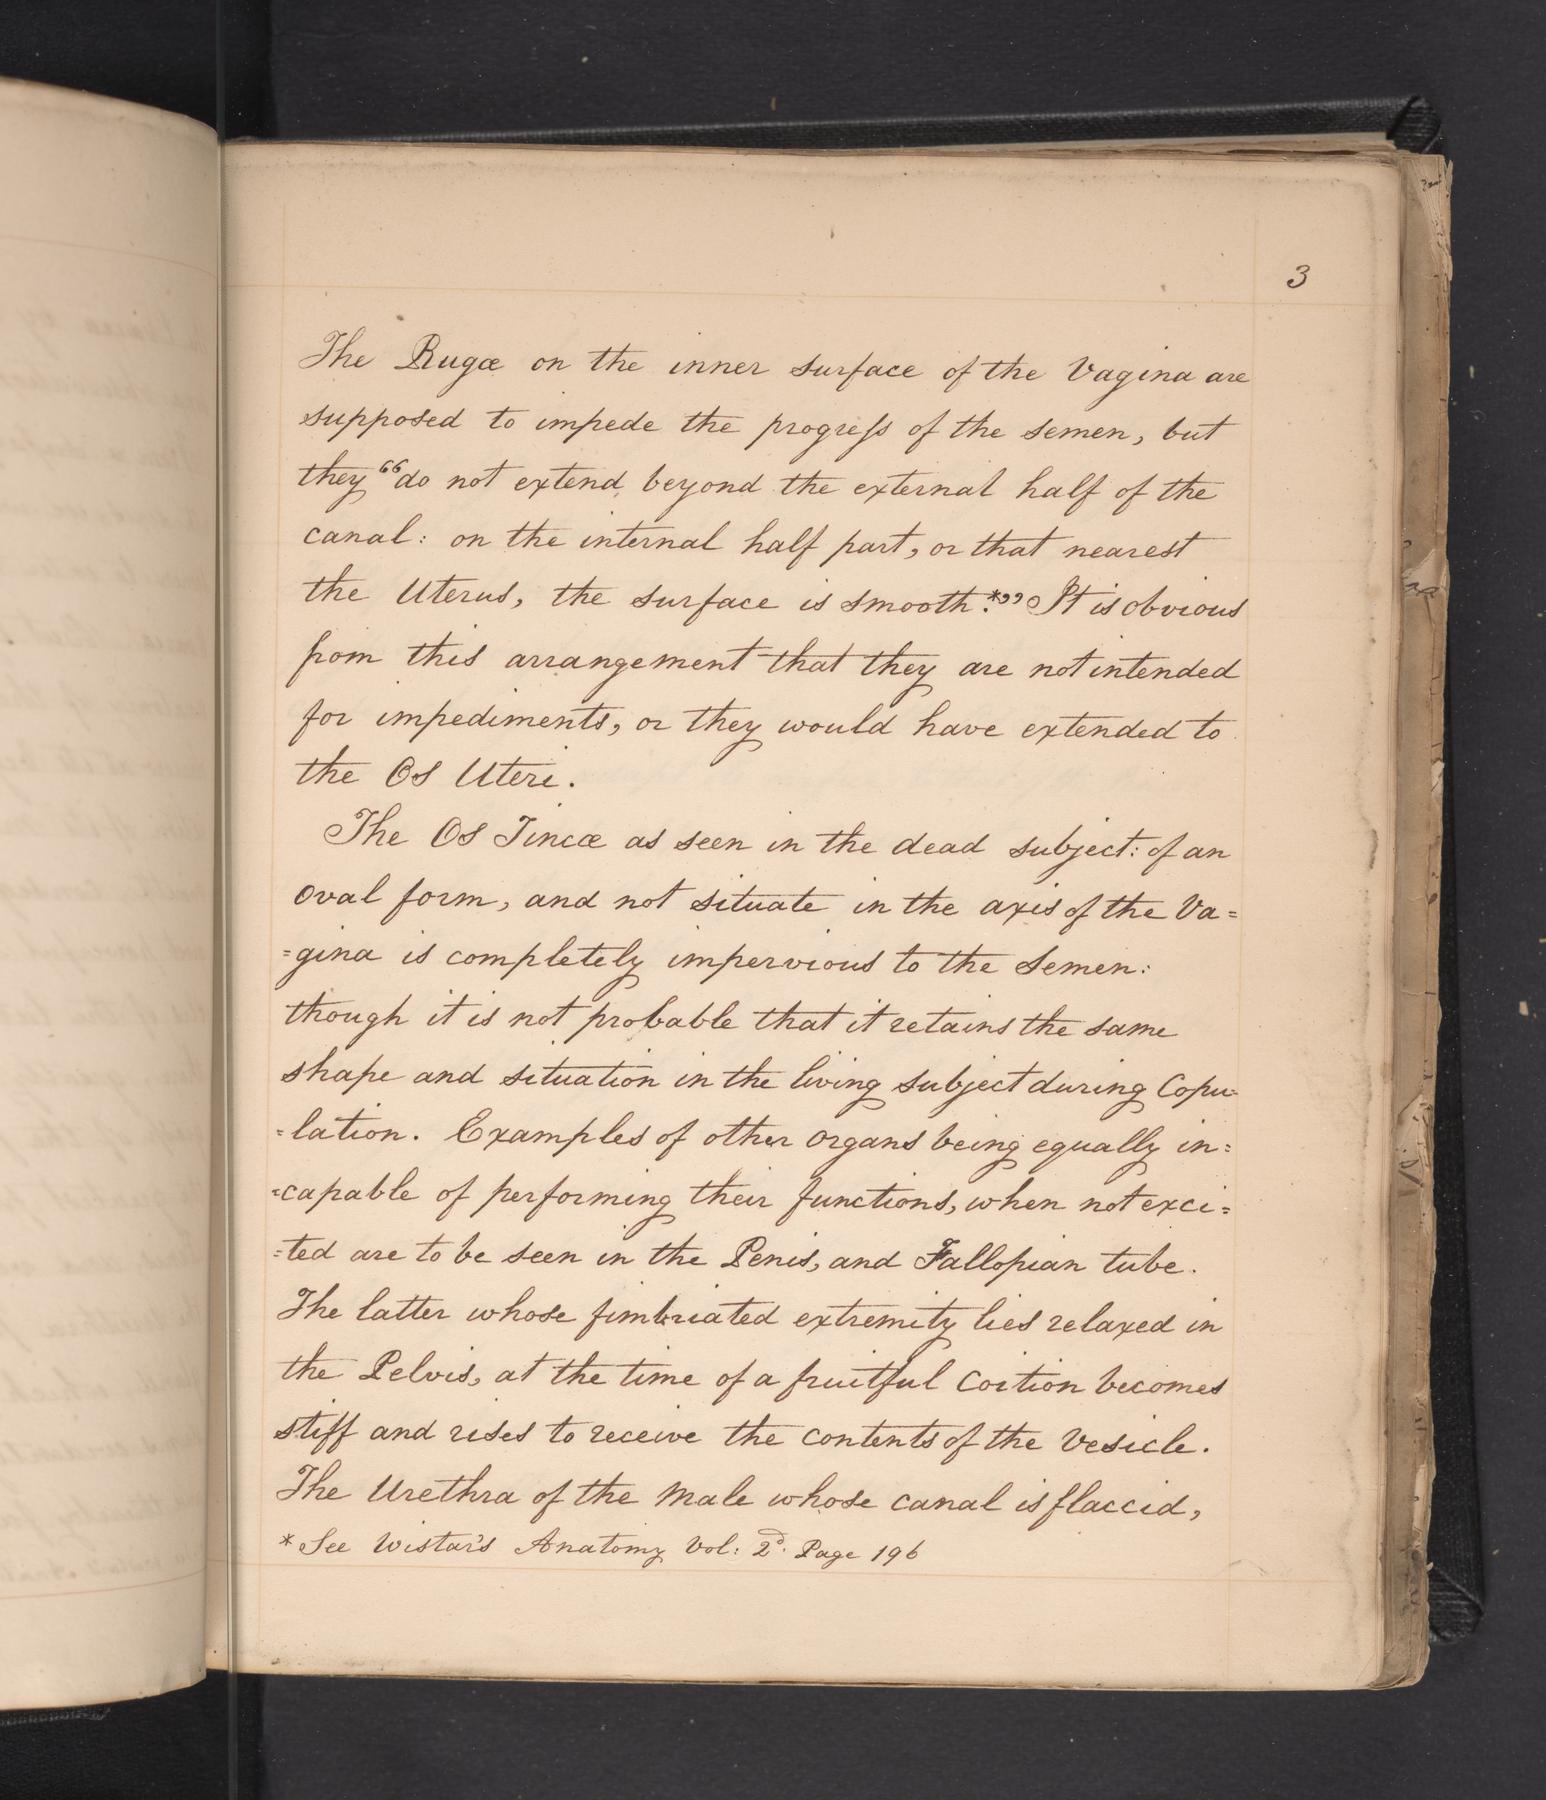 3
The Rugæ on the inner surface of the Vagina are
supposed to impede the progreſs of the semen, but
they “do not extend beyond the external half of the
canal: on the internal half part, or that nearest
the Uterus, the surface is smooth.*” It is obvious
from this arrangement that they are not intended
for impediments, or they would have extended to
the Os Uteri.
The Os Tincæ as seen in the dead subject: of an
oval form, and not situate in the axis of the Va=
=gina is completely impervious to the Semen:
though it is not probable that it retains the same
shape and situation in the living subject during Copu=
=lation. Examples of other organs being equally in=
=capable of performing their functions, when not exci=
=ted are to be seen in the Penis, and Fallopian tube.
The latter whose fimbriated extremity lies relaxed in
the Pelvis, at the time of a fruitful Coition becomes
stiff and rises to receive the contents of the Vesicle.
The Urethra of the Male whose canal is flaccid,
* See Wistar's Anatomy Vol: 2d. Page 196